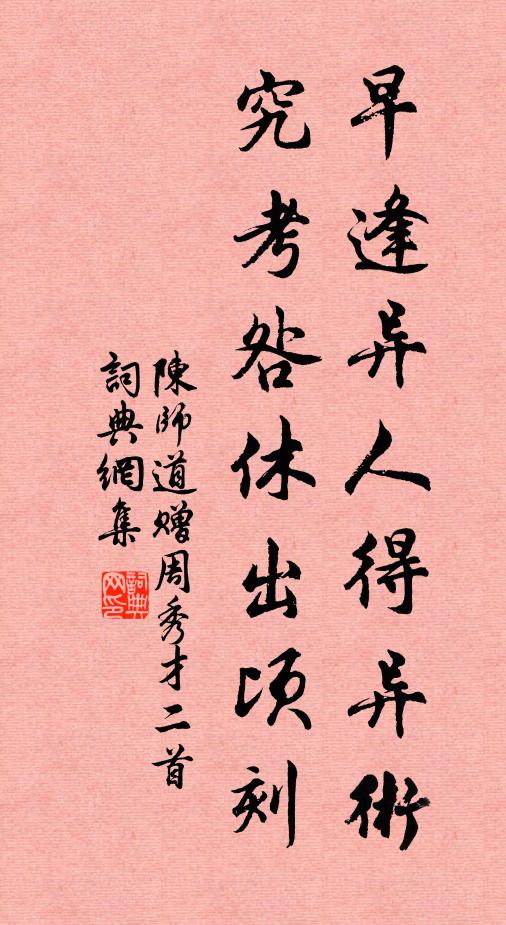 早逢异人得异術
究考咎休出頃刻
陳師道赠周秀才二首
詞典網集
詞典网印